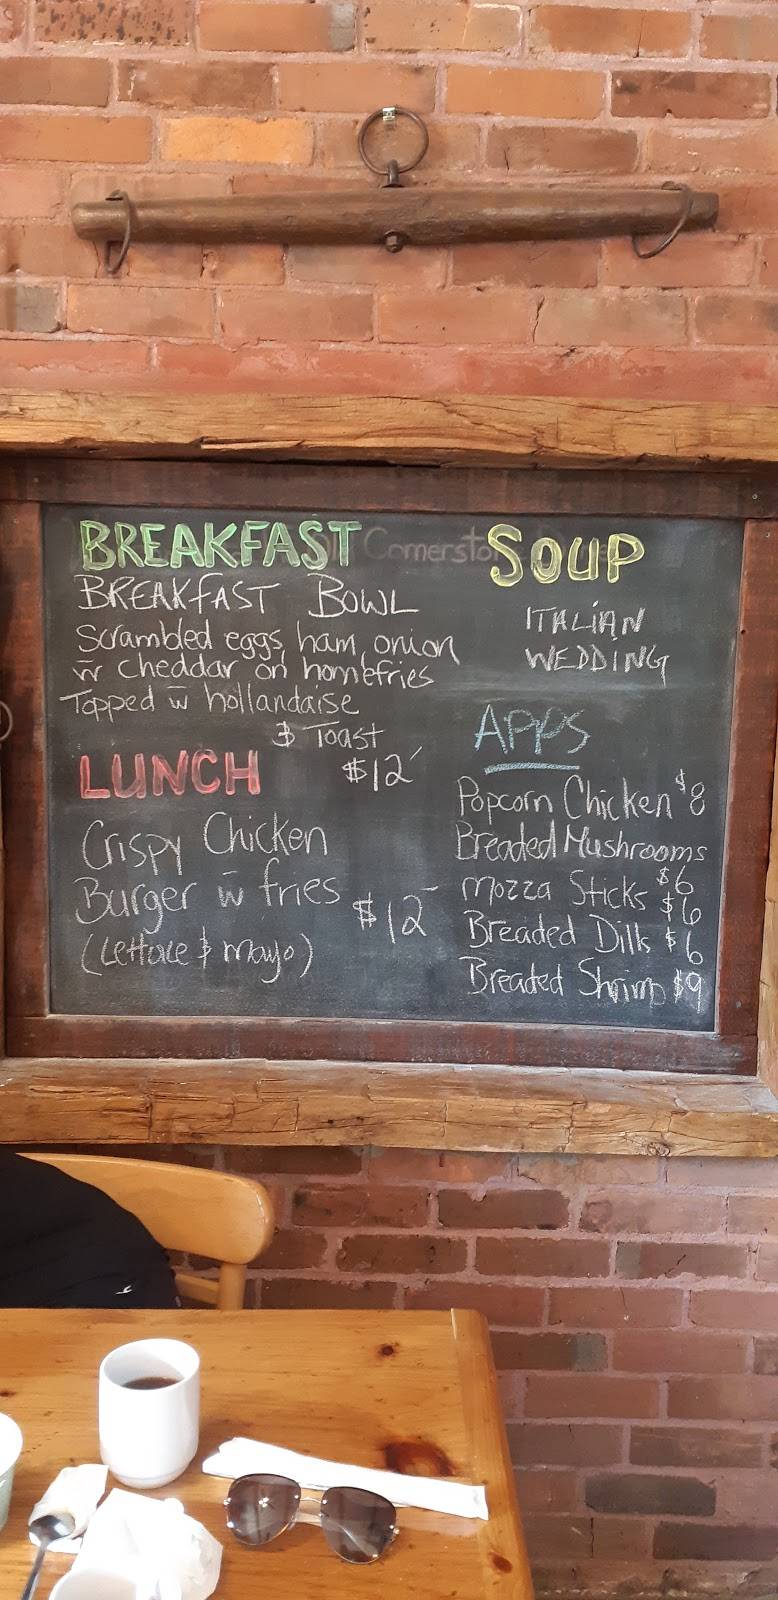 BREAKFAST
BREAKFAST BOWL
Scrambled eggs, ham, onion
w̄ cheddar on homefries
Topped w̄ hollandaise
& Toast
$12
LUNCH
Crispy Chicken
Burger w̄ fries
$12
(Lettuce & mayo)
Cornerstone
SOUP
ITALIAN
WEDDING
APPS
Popcorn Chicken $8
Breaded Mushrooms
$6
Mozza Sticks $6
Breaded Dills $6
Breaded Shrimp $9